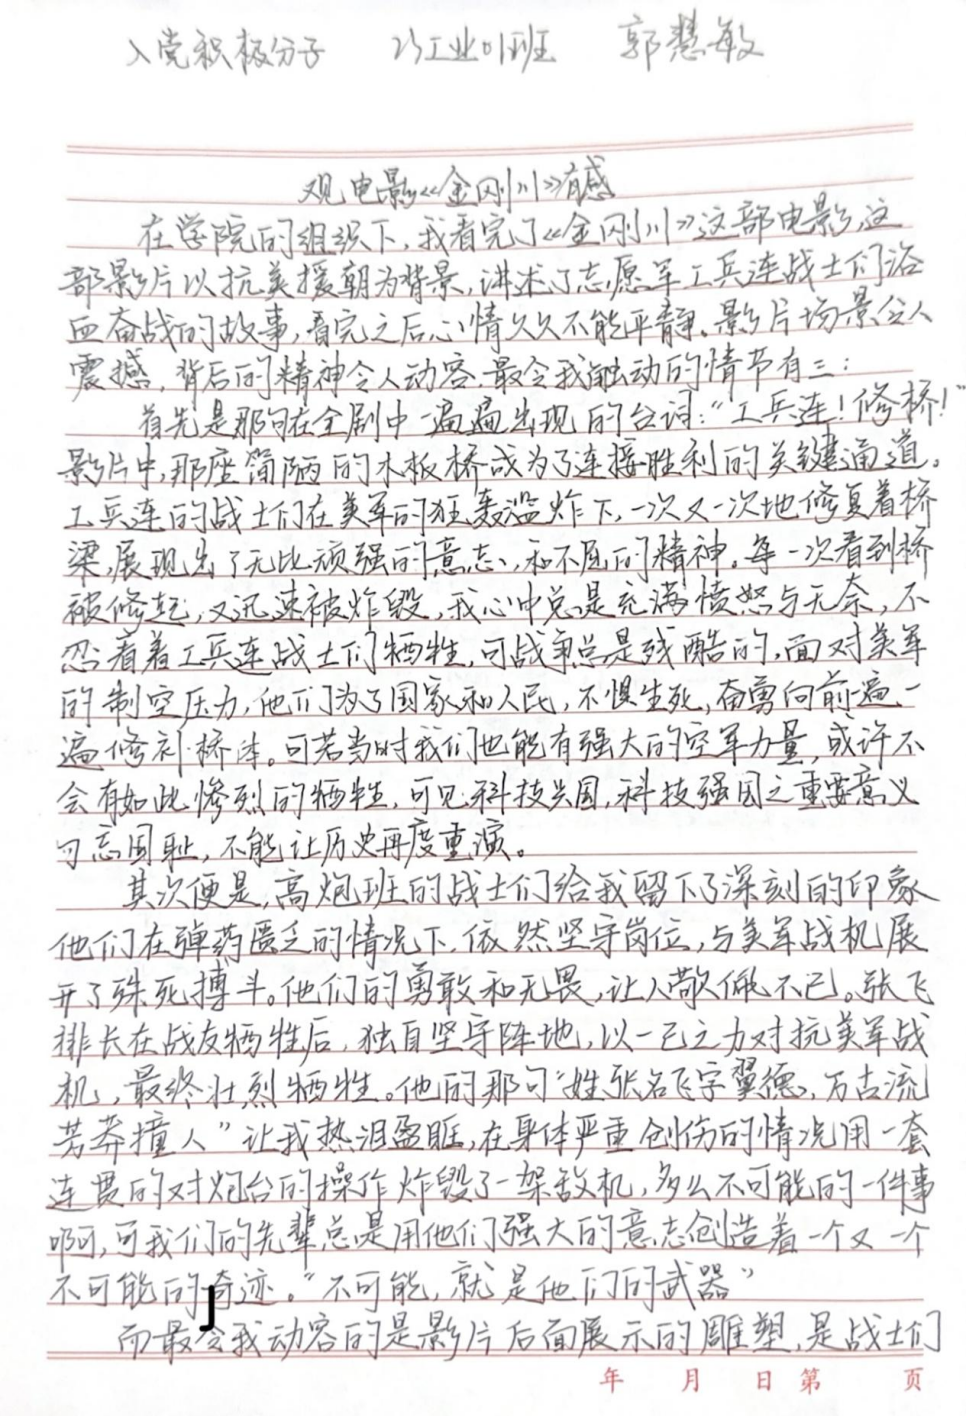 入党积极分子 23工业01班 郭慧敏
观电影《金刚川》有感
在学院的组织下,我看完了《金刚川》这部电影,这
部影片以抗美援朝为背景,讲述了志愿军工兵连战士们浴
血奋战的故事,看完之后,心情久久不能平静。影片场景令人
震撼,背后的精神令人动容,最令我触动的情节有三:
首先是那句在全剧中一遍遍出现的台词:“工兵连!修桥!”
影片中,那座简陋的木板桥成为了连接胜利的关键通道。
工兵连的战士们在美军的狂轰滥炸下,一次又一次地修复着桥
梁,展现出了无比顽强的意志、和不屈的精神。每一次看到桥
被修起,又迅速被炸毁,我心中总是充满愤怒与无奈,不
忍看着工兵连战士们牺牲,可战争总是残酷的,面对美军
的制空压力,他们为了国家和人民,不惧生死,奋勇向前遍一
遍修补桥体。可若当时我们也能有强大的空军力量,或许不
会有如此惨烈的牺牲,可见科技兴国,科技强国之重要意义
勿忘国耻,不能让历史再度重演。
其次便是,高炮班的战士们给我留下了深刻的印象
他们在弹药匮乏的情况下,依然坚守岗位,与美军战机展
开了殊死搏斗。他们的勇敢和无畏,让人敬佩不已。张飞
排长在战友牺牲后,独自坚守阵地,以一己之力对抗美军战
机,最终壮烈牺牲。他的那句“姓张名飞字翼德,万古流
芳莽撞人”让我热泪盈眶,在身体严重创伤的情况用一套
连贯的对炮台的操作炸毁了一架敌机,多么不可能的一件事
啊,可我们的先辈总是用他们强大的意志创造着一个又一个
不可能的奇迹。“不可能,就是他们的武器”
而最令我动容的是影片后面展示的雕塑,是战士们
年 月 日 第 页